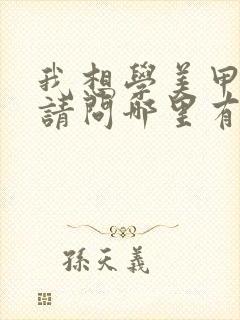 我想學美甲
請問哪里有
孫天義